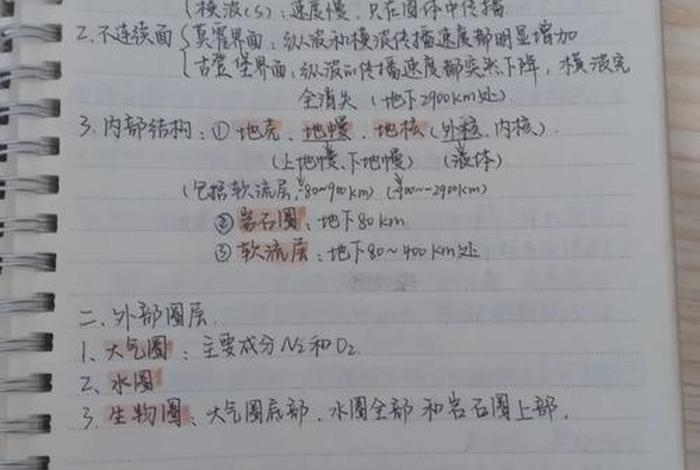 横波(S)：速度慢，只在固体中传播
2.不连续面 莫霍界面：纵波和横波传播速度都明显增加
古登堡界面：纵波的传播速度都突然下降，横波完
全消失（地下2900km处）
3.内部结构：①地壳、地幔、地核(外核、内核).
(上地幔、下地幔) (液体)
(包括软流层，80~900km) (900~~2900km)
②岩石圈：地下80km
③软流层：地下80~400km处
二、外部圈层.
1、大气圈：主要成分N₂和O₂
2、水圈
3、生物圈：大气圈底部、水圈全部和岩石圈上部.